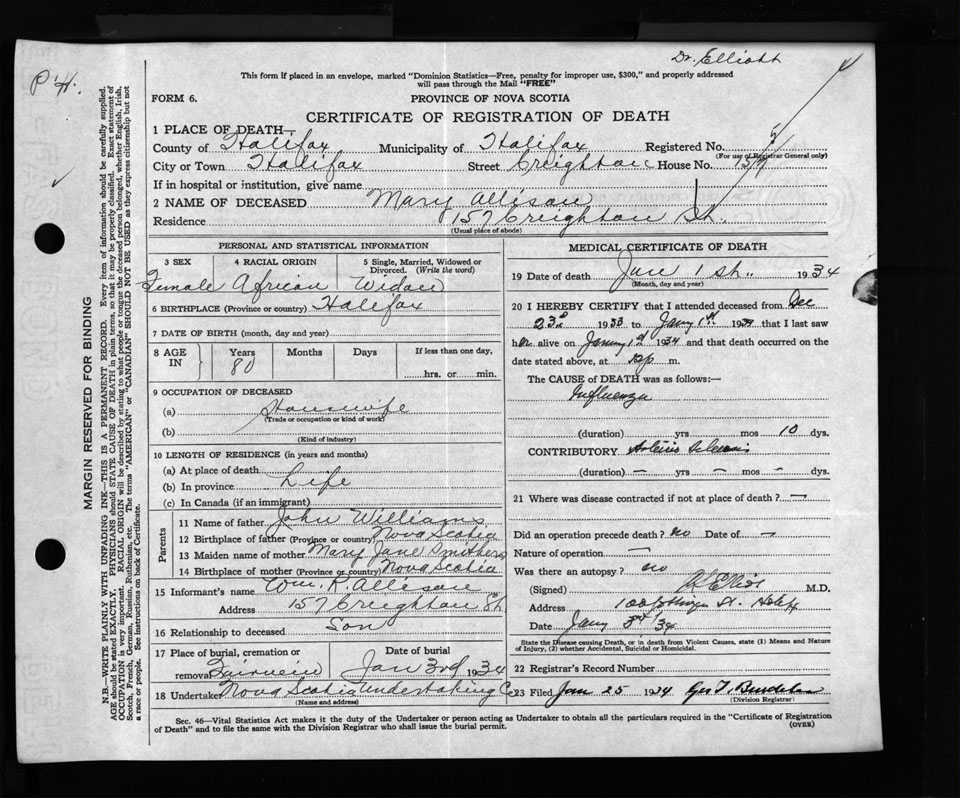 Dr. Elliott
P.H.
This form if placed in an envelope, marked "Dominion Statistics—Free, penalty for improper use, $300," and properly addressed
will pass through the Mail "FREE"
FORM 6.
PROVINCE OF NOVA SCOTIA
CERTIFICATE OF REGISTRATION OF DEATH
1 PLACE OF DEATH—
County of Halifax Municipality of Halifax Registered No. 5
(For use of Registrar General only)
City or Town Halifax Street Creighton House No. 157
If in hospital or institution, give name
2 NAME OF DECEASED Mary Allison
Residence 157 Creighton St.
(Usual place of abode)
PERSONAL AND STATISTICAL INFORMATION
3 SEX 4 RACIAL ORIGIN 5 Single, Married, Widowed or
Divorced. (Write the word)
Female African Widow
6 BIRTHPLACE (Province or country) Halifax
7 DATE OF BIRTH (month, day and year)
8 AGE IN Years Months Days If less than one day,
80 hrs. or min.
9 OCCUPATION OF DECEASED
(a) Housewife
(Trade or occupation or kind of work)
(b)
(Kind of industry)
10 LENGTH OF RESIDENCE (in years and months)
(a) At place of death
(b) In province Life
(c) In Canada (if an immigrant)
Parents
11 Name of father John Williams
12 Birthplace of father (Province or country) Nova Scotia
13 Maiden name of mother Mary Jane Smithers
14 Birthplace of mother (Province or country) Nova Scotia
15 Informant's name Wm. R. Allison
Address 157 Creighton St
16 Relationship to deceased Son
17 Place of burial, cremation or Date of burial
removal Fairview Jan 3rd 1934
18 Undertaker Nova Scotia Undertaking Co
(Name and address)
MEDICAL CERTIFICATE OF DEATH
19 Date of death Jan 1st. 1934
(Month, day and year)
20 I HEREBY CERTIFY that I attended deceased from Dec
23d 1933 to Jany 1st 1934 that I last saw
her alive on Jany 1st 1934 and that death occurred on the
date stated above, at m.
The CAUSE of DEATH was as follows:—
Influenza
(duration) yrs mos 10 dys.
CONTRIBUTORY Arterio Sclerosis
(duration) — yrs — mos — dys.
21 Where was disease contracted if not at place of death? —
Did an operation precede death? no Date of —
Nature of operation —
Was there an autopsy? no
(Signed) M.D.
Address St. Halifx
Date Jany 3rd 34
State the Disease causing Death, or in death from Violent Causes, state (1) Means and Nature
of Injury, (2) whether Accidental, Suicidal or Homicidal.
22 Registrar's Record Number
23 Filed Jan 25 1934 Geo T.
(Division Registrar)
Sec. 46—Vital Statistics Act makes it the duty of the Undertaker or person acting as Undertaker to obtain all the particulars required in the "Certificate of Registration
of Death" and to file the same with the Division Registrar who shall issue the burial permit. (OVER)
MARGIN RESERVED FOR BINDING
N.B.—WRITE PLAINLY WITH UNFADING INK—THIS IS A PERMANENT RECORD. Every item of information should be carefully supplied.
AGE should be stated EXACTLY. PHYSICIANS should STATE CAUSE OF DEATH in plain terms, so that it may be properly classified. Exact statement of
OCCUPATION is very important. RACIAL ORIGIN will be described by stating to what people or tongue the deceased person belonged, whether English, Irish,
Scotch, French, German, Russian, Ruthenian, etc. The terms "AMERICAN" or "CANADIAN" SHOULD NOT BE USED as they express citizenship but not
a race or people. See instructions on back of Certificate.